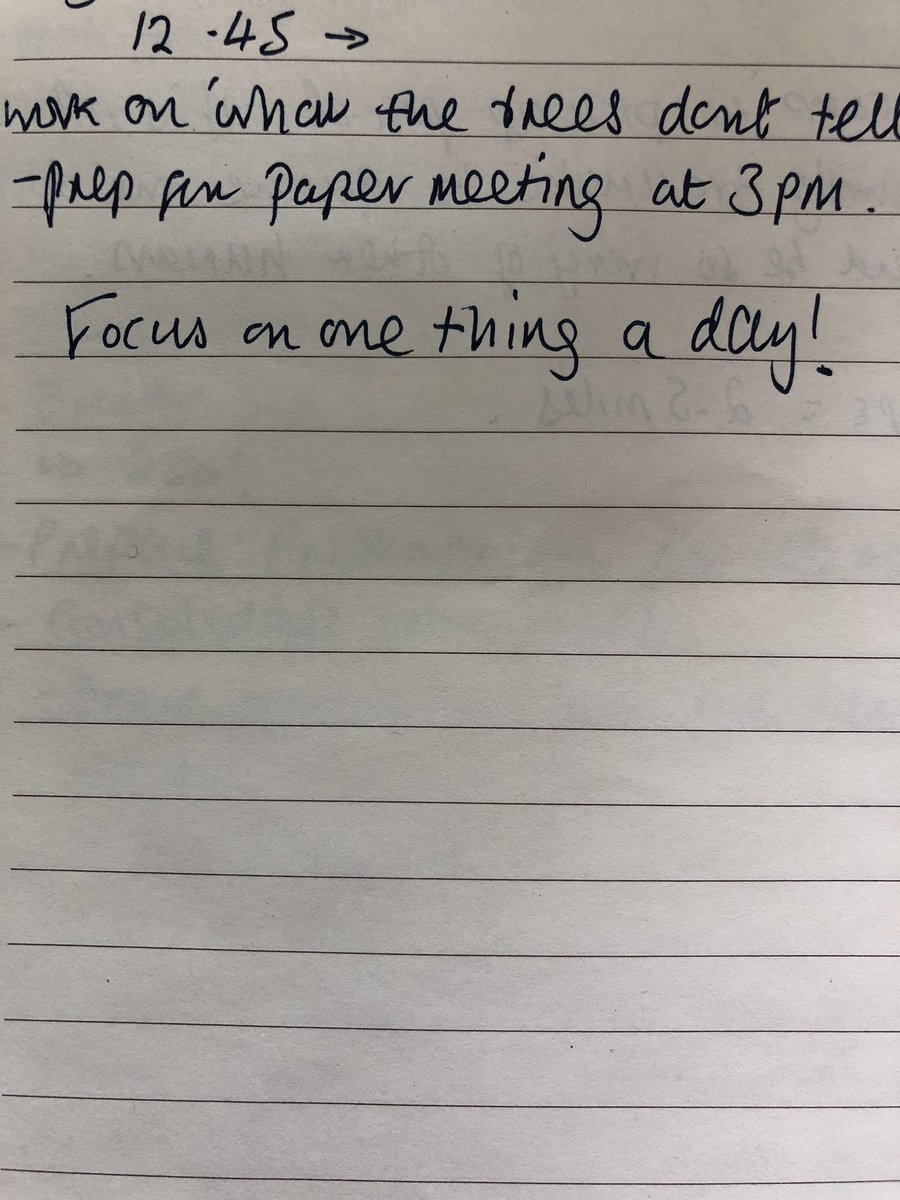 12.45 →
work on 'what the trees dont tell
-prep for paper meeting at 3pm.
Focus on one thing a day!
= 2-5 miles.